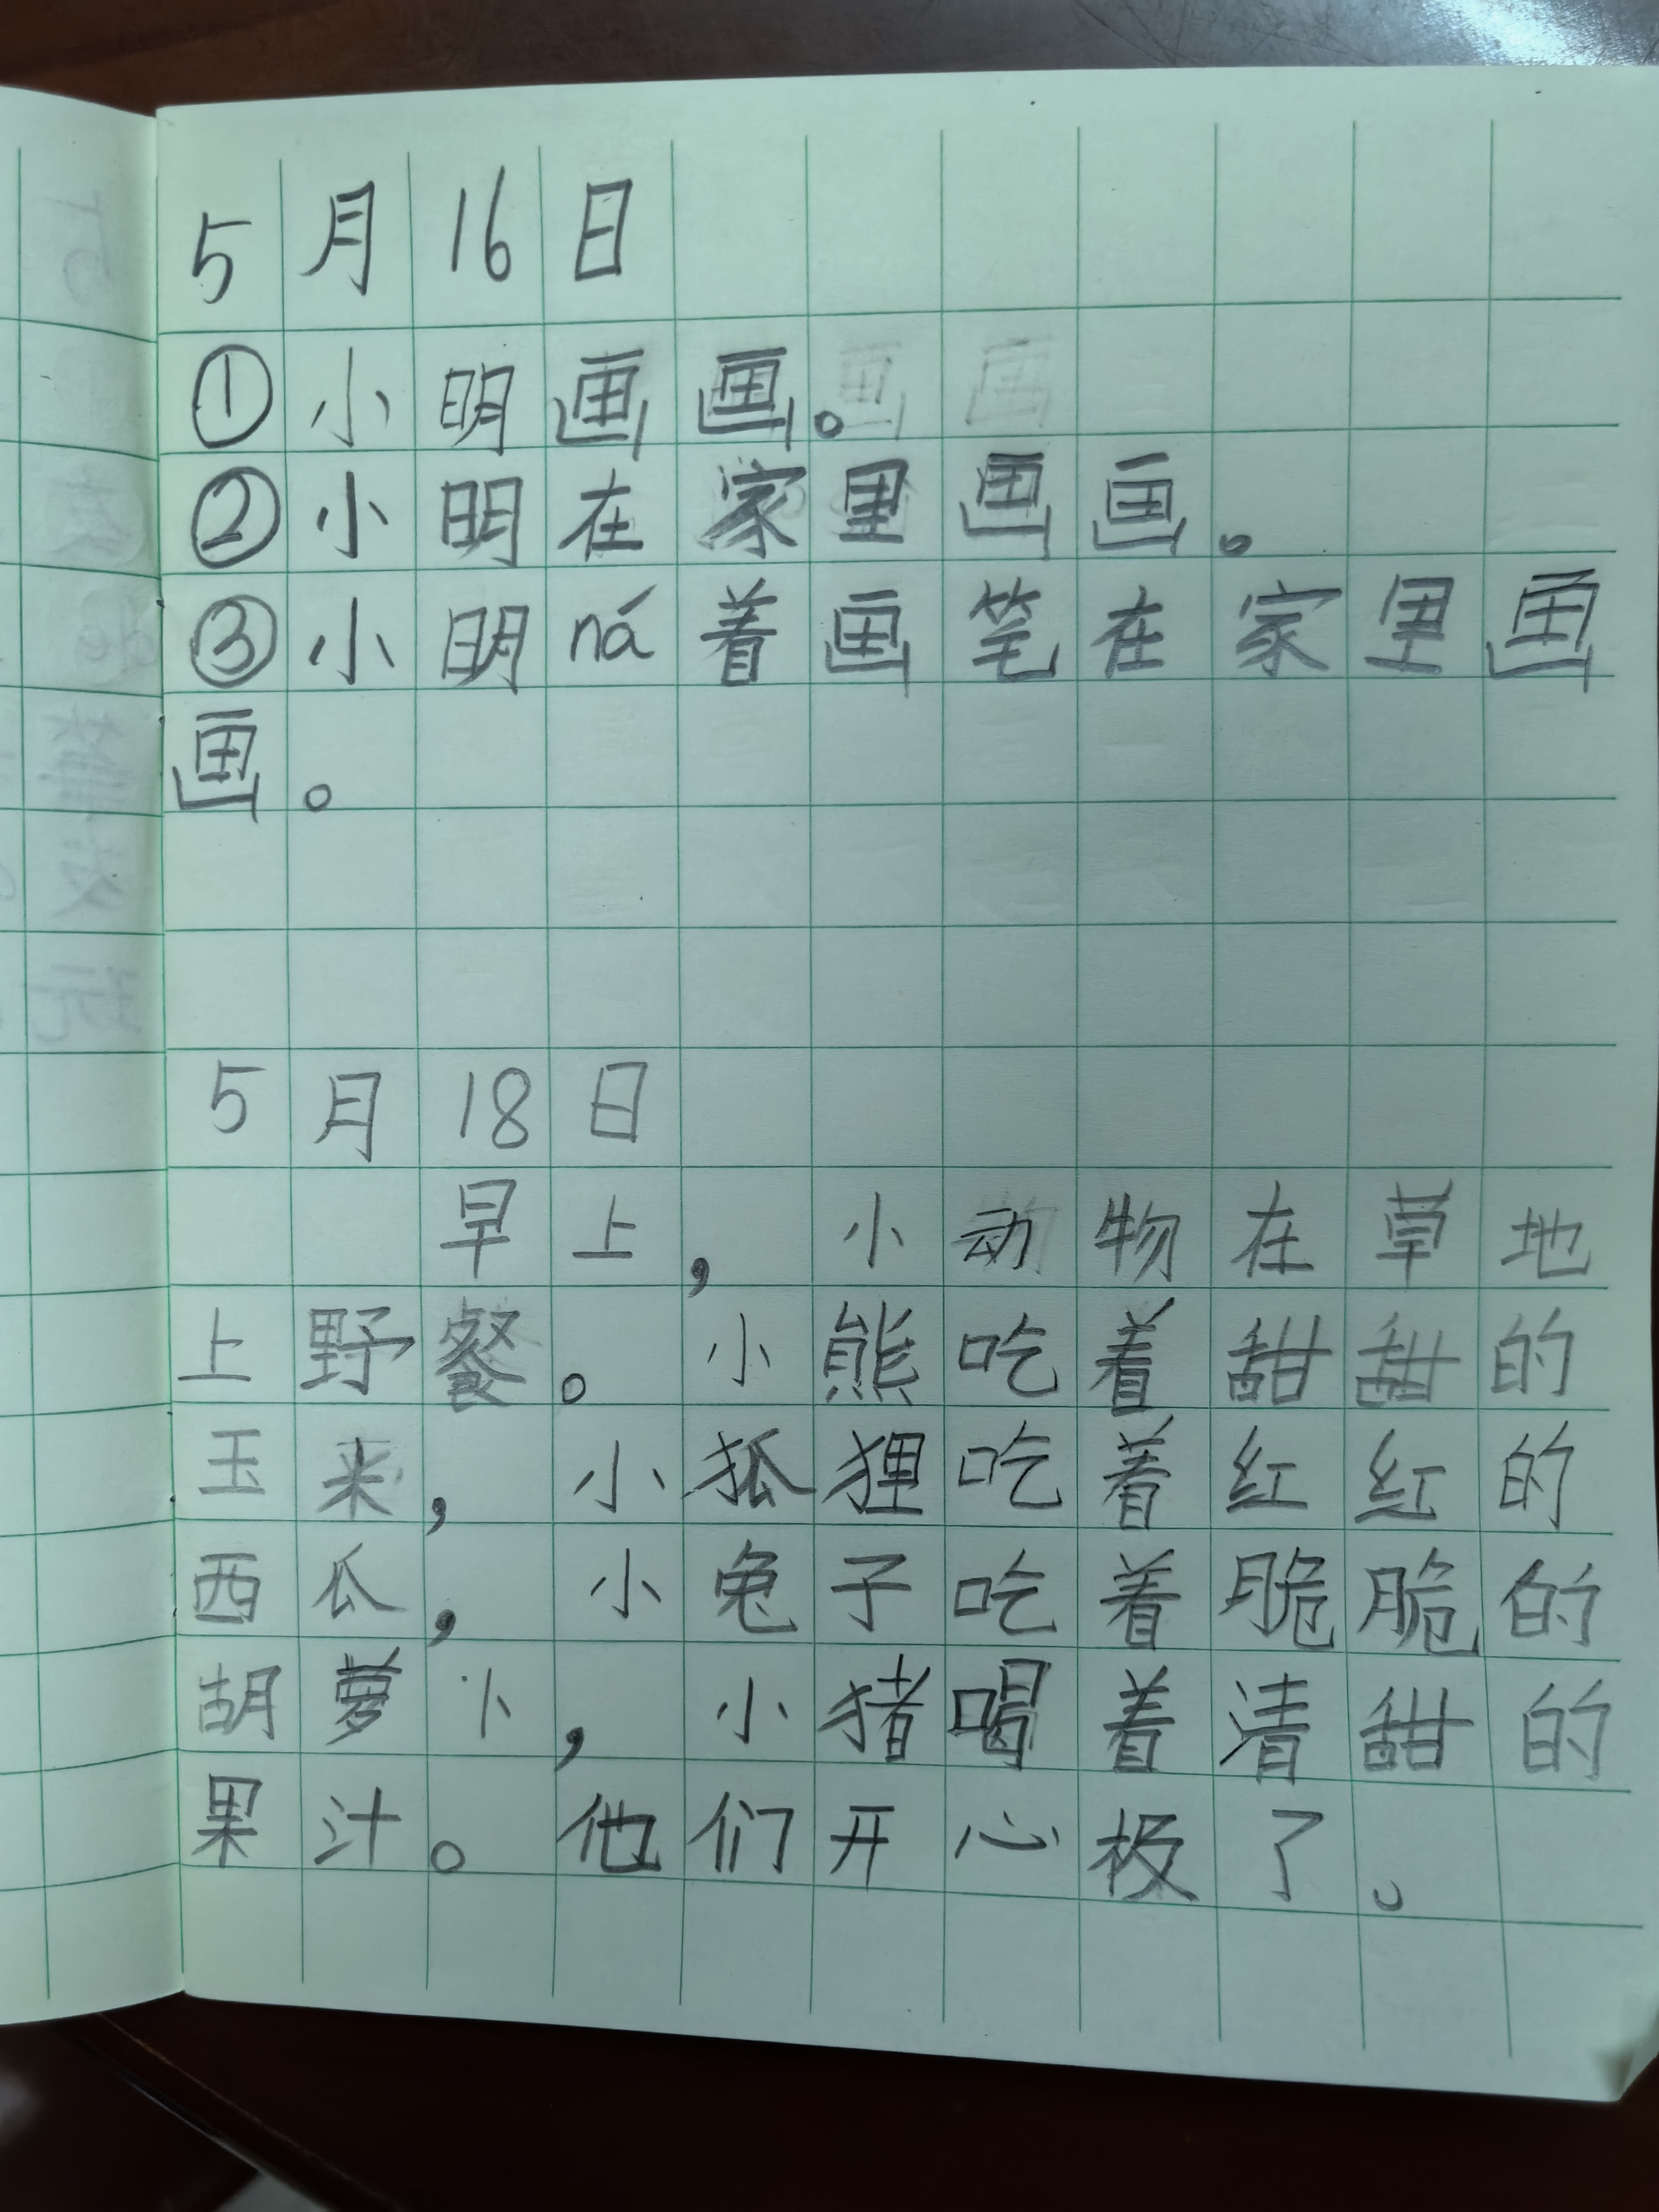 5月16日
①小明画画。
②小明在家里画画。
③小明ná着画笔在家里画
画。
5月18日
早上，小动物在草地
上野餐。小熊吃着甜甜的
玉米，小狐狸吃着红红的
西瓜，小兔子吃着脆脆的
胡萝卜，小猪喝着清甜的
果汁。他们开心极了。